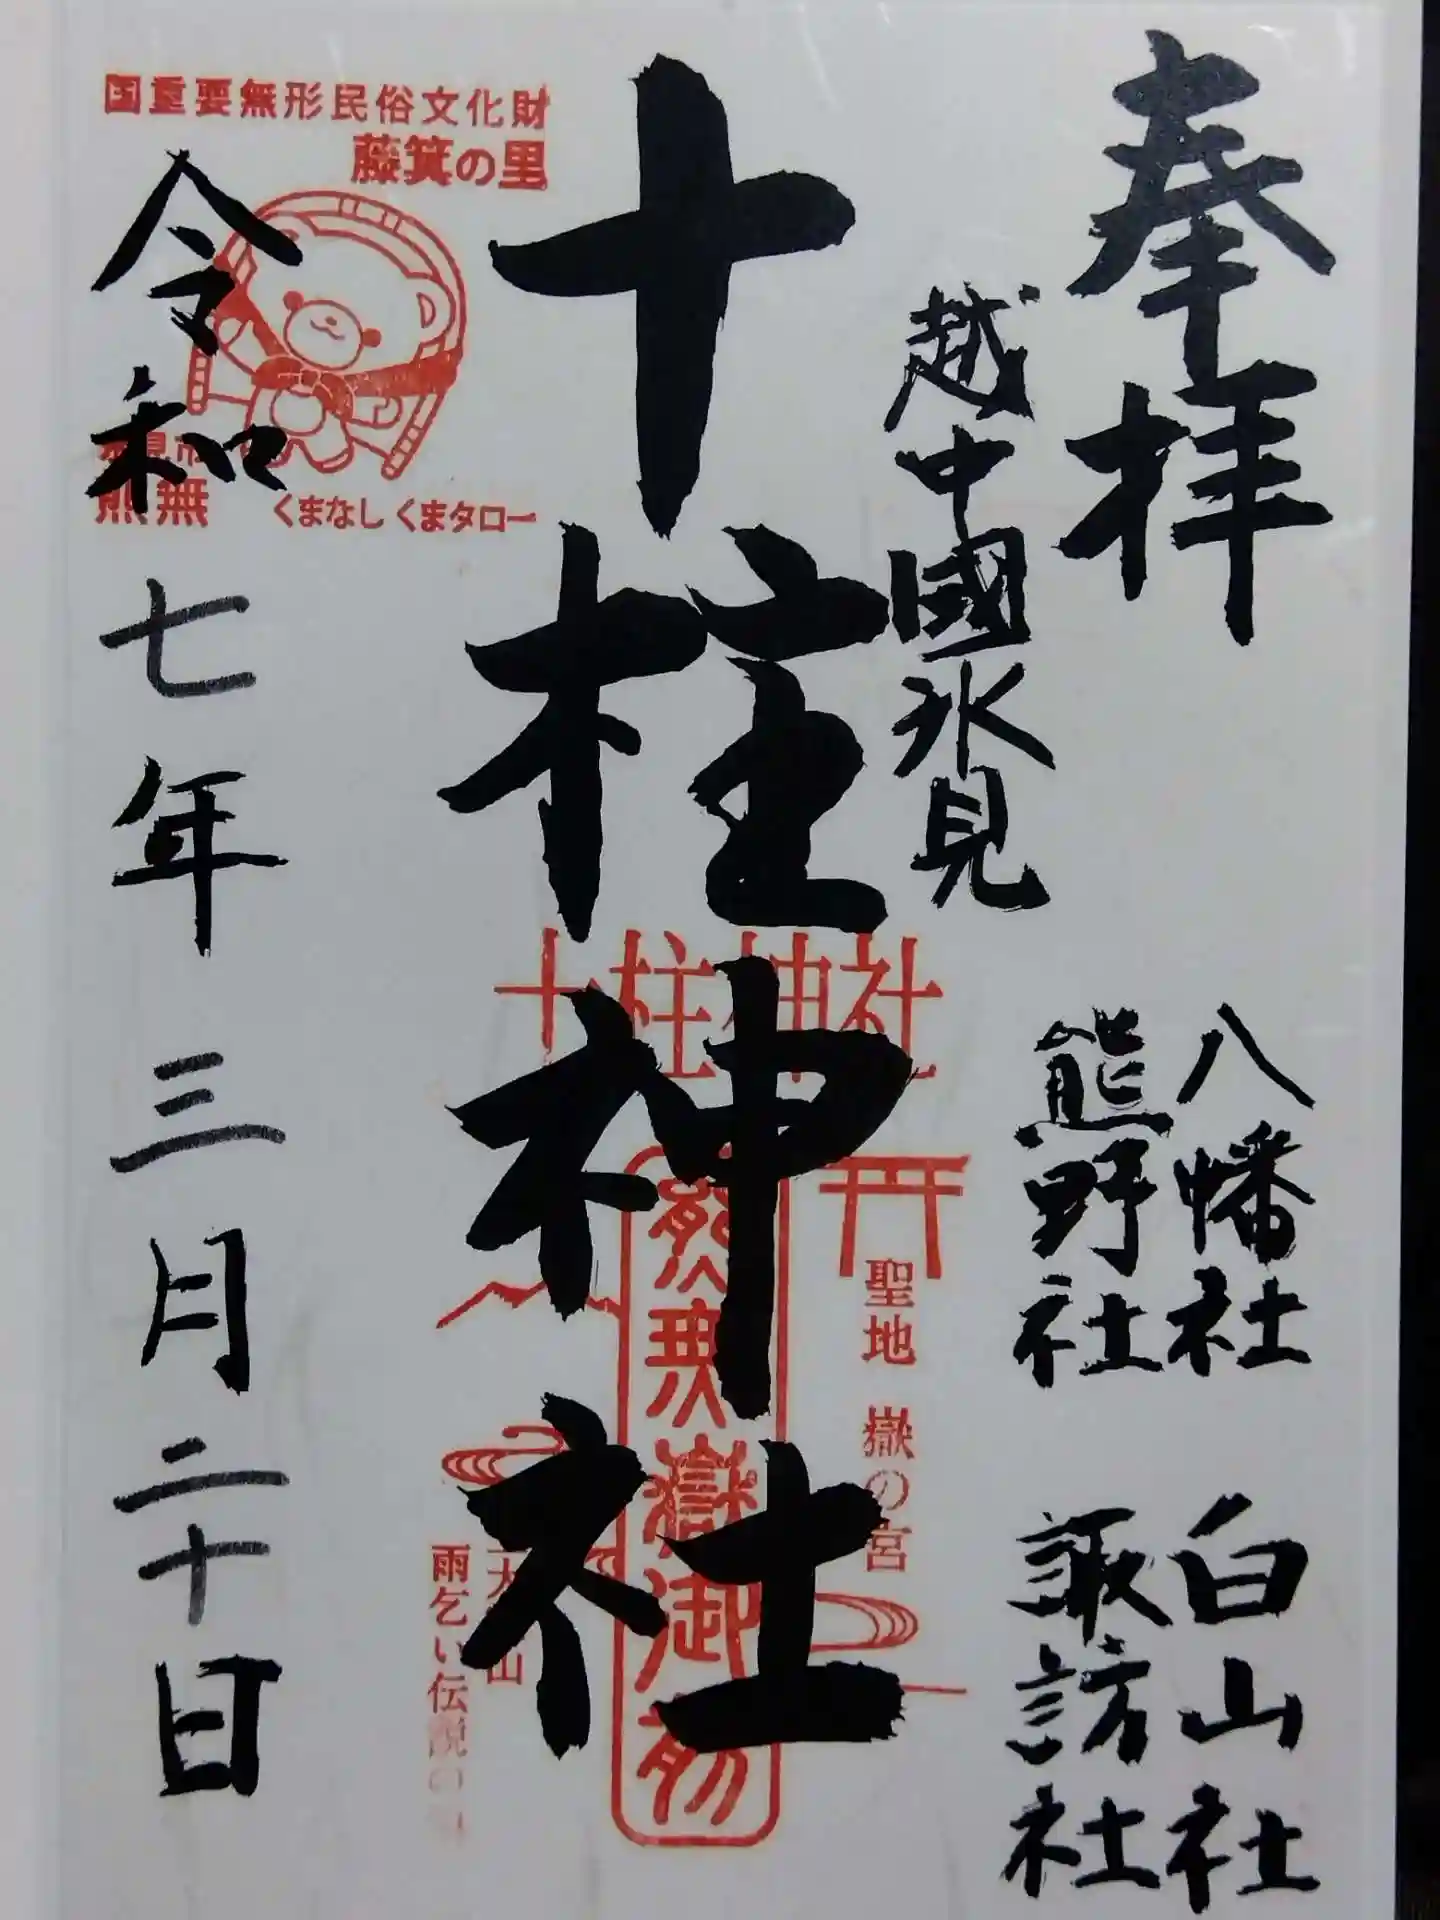 奉拝
八幡社 白山社
熊野社 諏訪社
越中國氷見
十柱神社
令和七年三月二十日
国重要無形民俗文化財
藤箕の里
氷見市
熊無
くまなし くまタロー
十柱神社
聖地 嶽の宮
熊無嶽御前
雨乞い伝説の